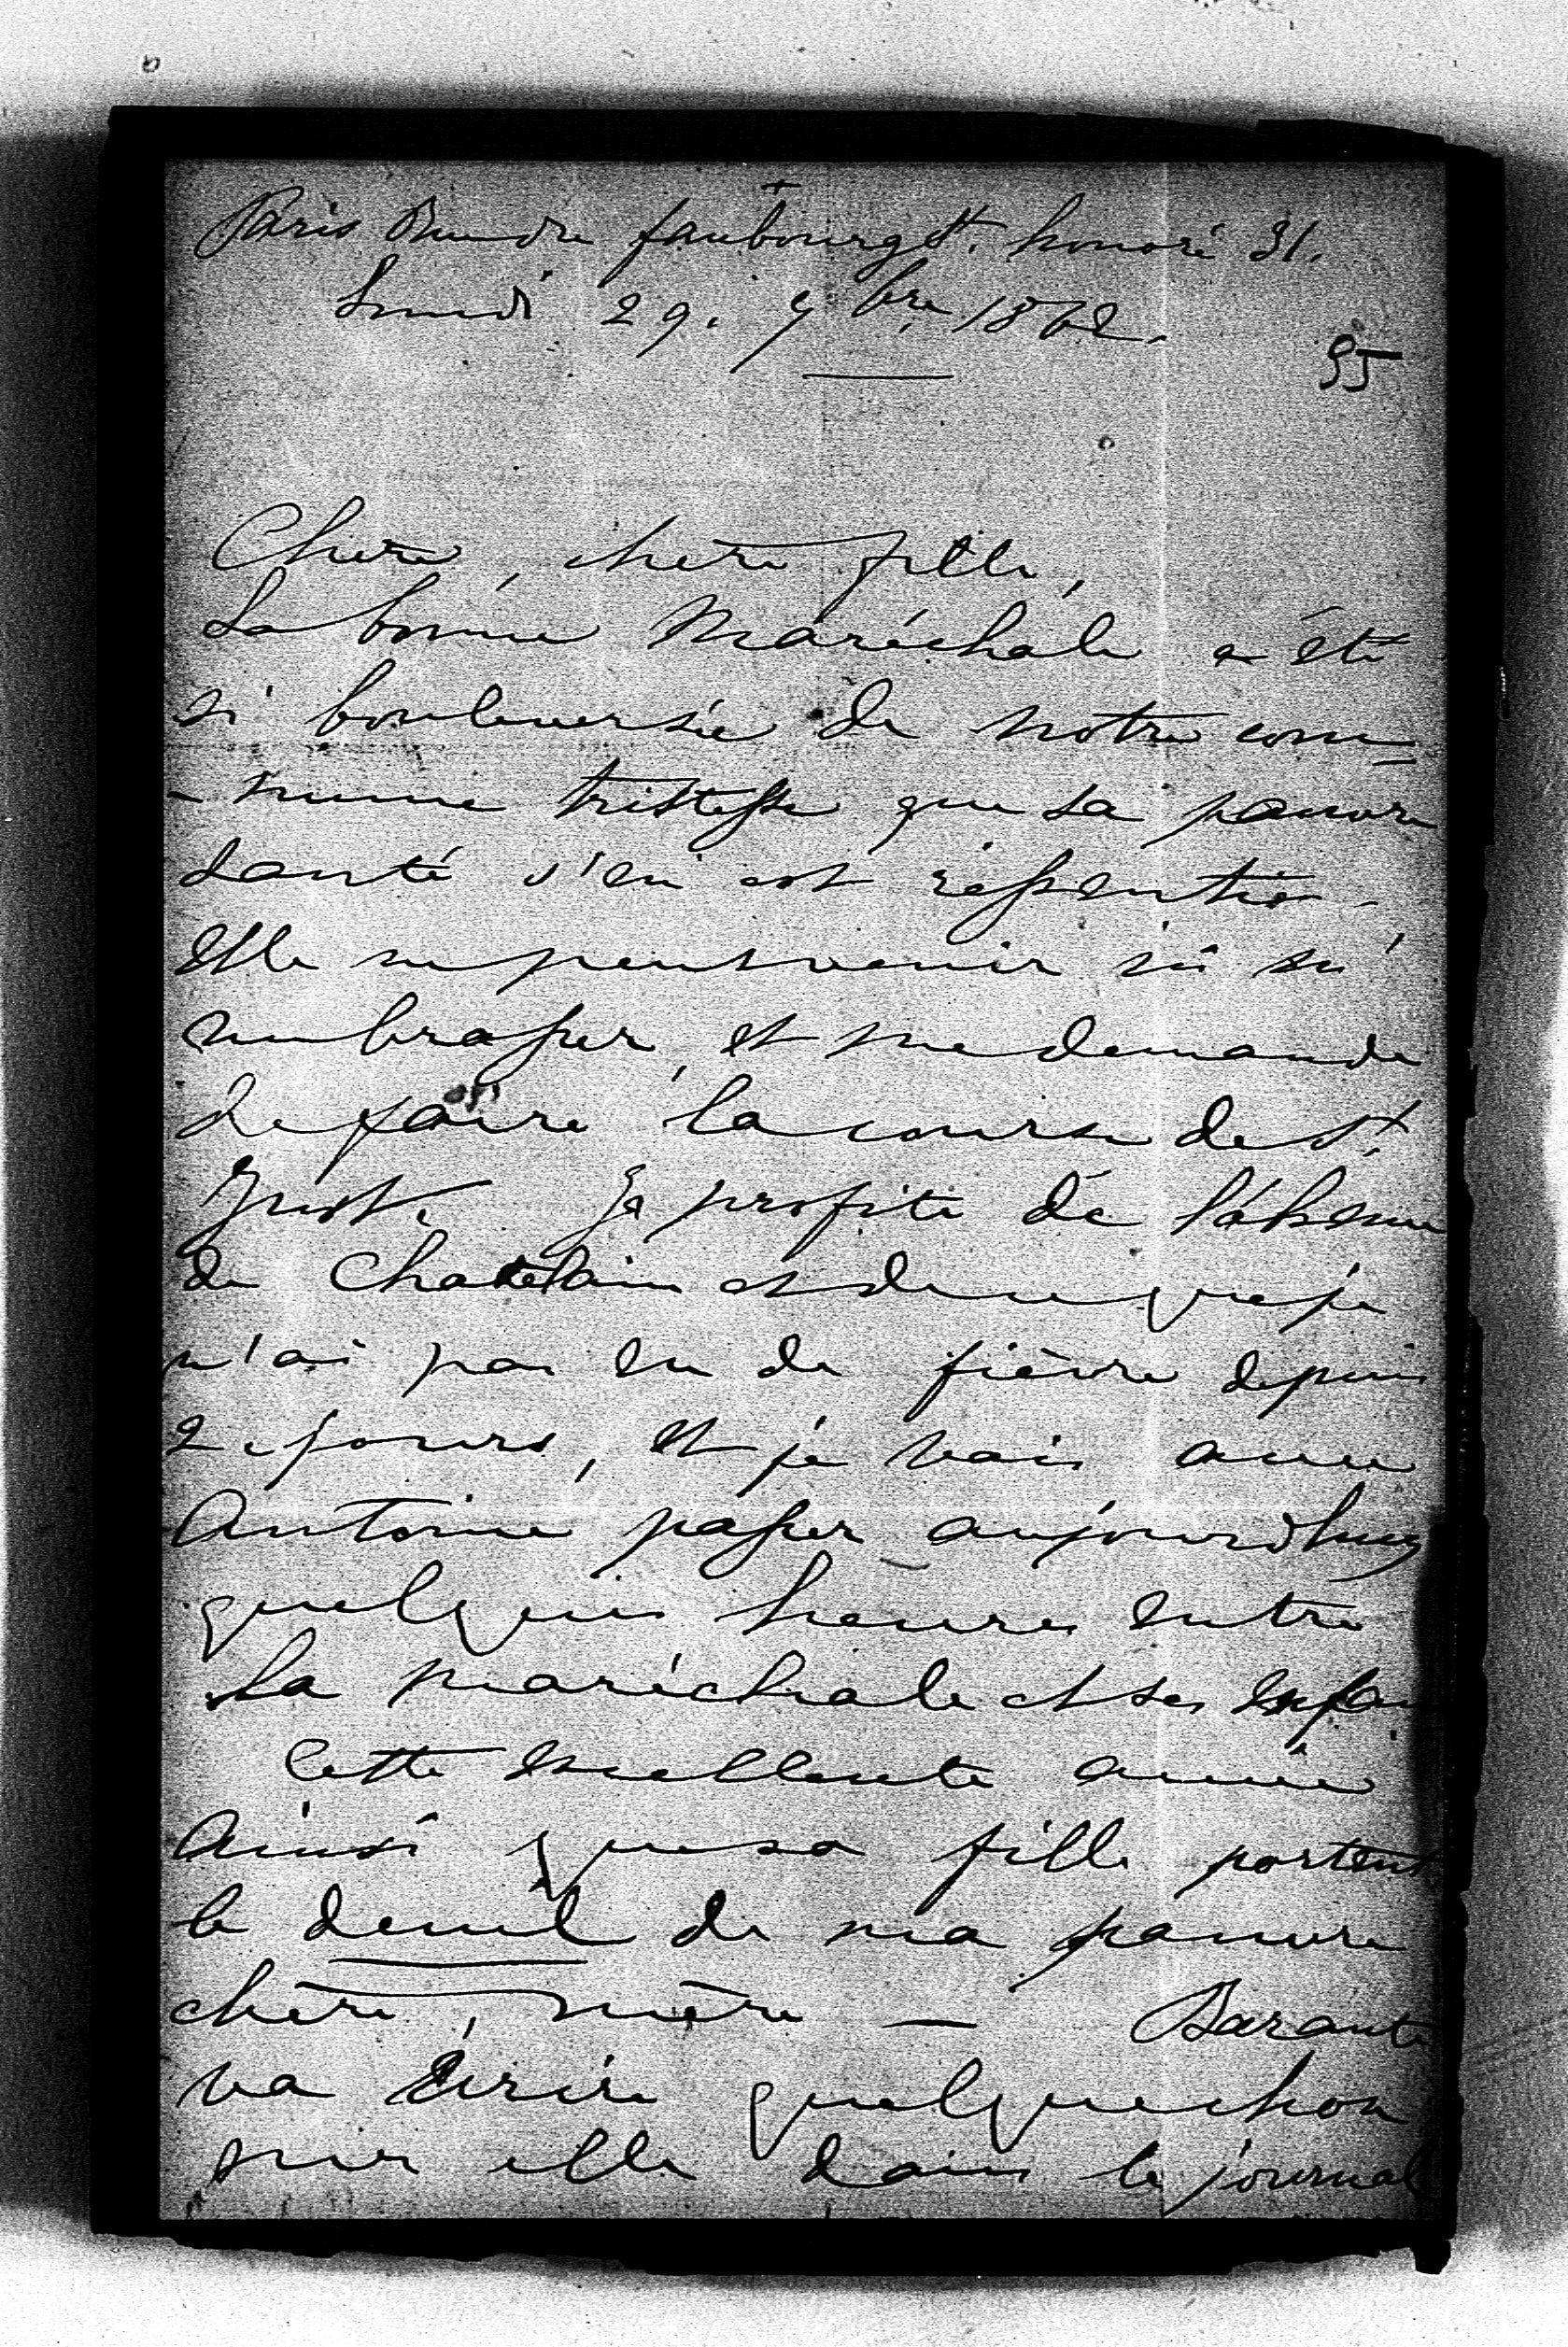 +
Paris Rue du faubourg St. honoré 31.
Lundi 29. 7bre 1862.
95
Chère, chère fille,
La bonne Maréchale a été
si bouleversée de notre com=
-mune tristesse que sa pauvre
santé s'en est ressentie.
Elle ne peut venir ici m'
embrasser, et me demande
de faire la course de St.
Just. Je profite de l'absence
de Chatelain et de ce que je
n'ai pas eu de fièvre depuis
2 jours, et je vais avec
Antoine passer aujourdhuy
quelques heures entre
la maréchale et ses enfan
Cette excellente amie
Ainsi que sa fille portent
le deuil de ma pauvre
chère, mère — Barante
va écrire quelque chose
sur elle dans le journal